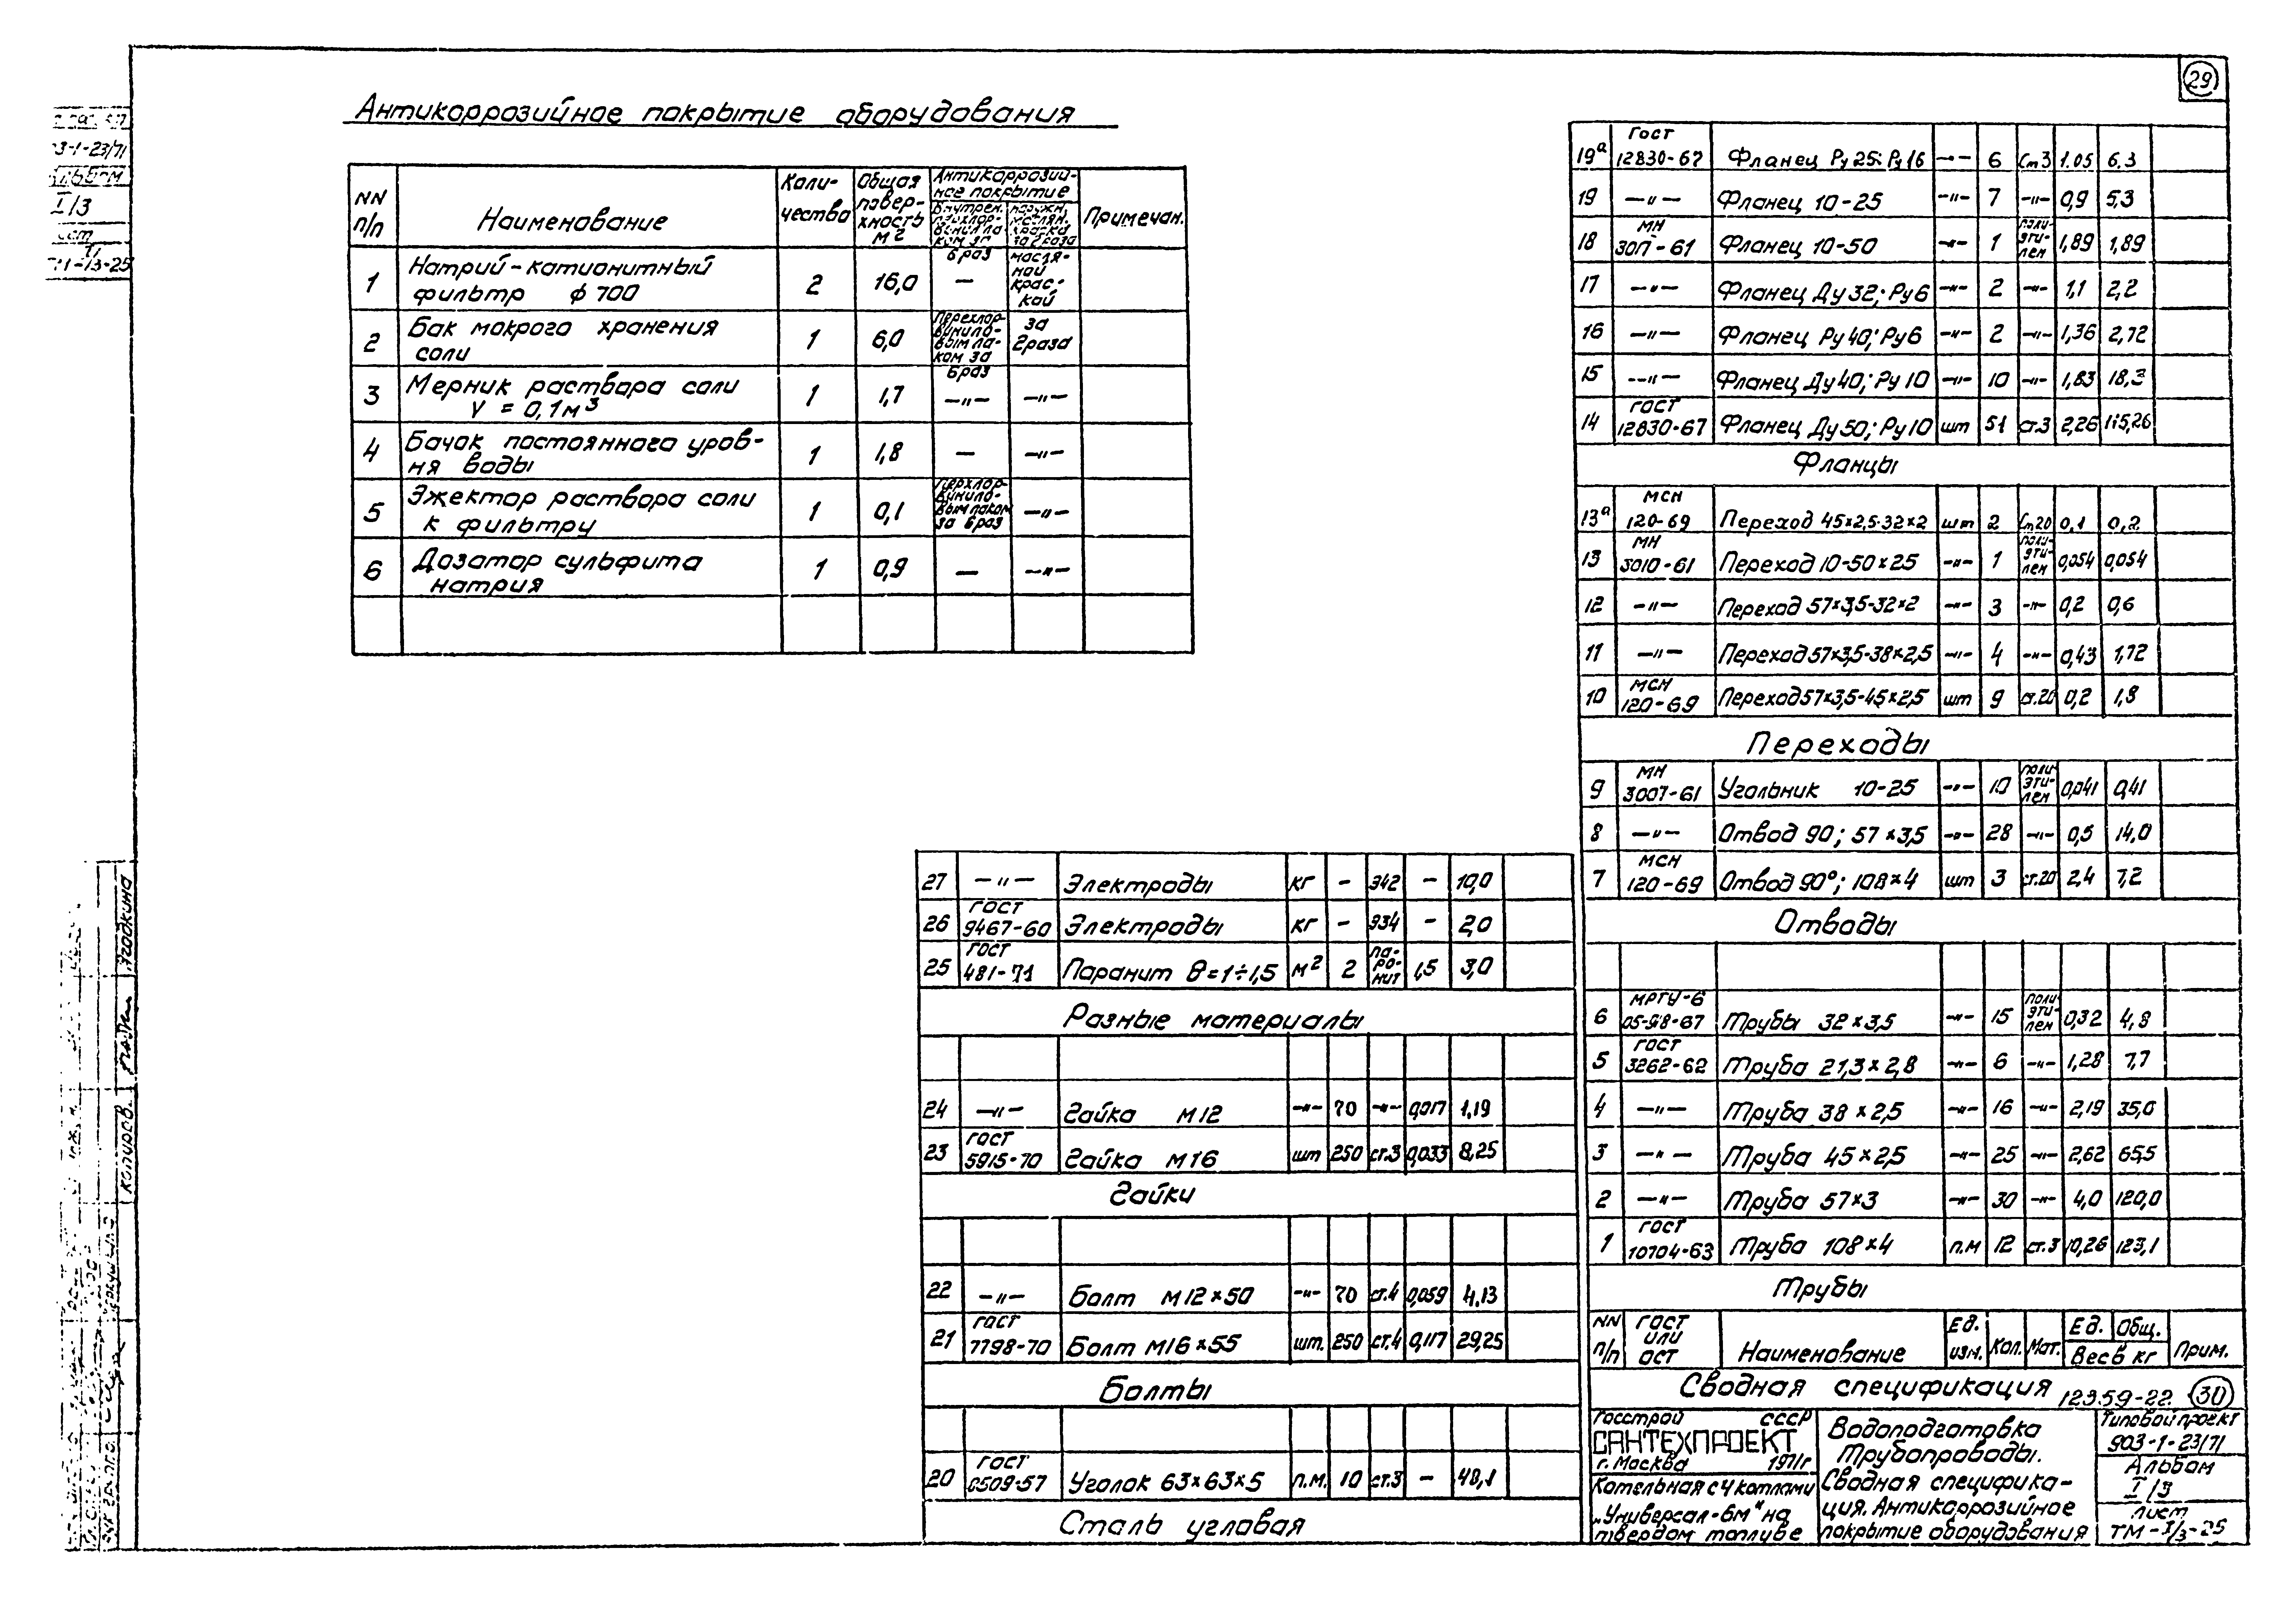 29
Антикоррозийное покрытие оборудования
NN п/п
Наименование
Коли-чества
Общая повер-хность м2
Антикоррозий-ное покрытие
Примечан.
1 Натрий-катионитный фильтр ф 700 2 16,0 — масля-ной крас-кой
2 Бак мокрого хранения соли 1 6,0 Перехлор-винило-вым ла-ком за 6 раз за 2 раза
3 Мерник раствора соли V = 0,1 м³ 1 1,7 —"— —"—
4 Бачок постоянного уров-ня воды 1 1,8 — —"—
5 Эжектор раствора соли к фильтру 1 0,1 Перхлор-винило-вым лаком за 6 раз —"—
6 Дозатор сульфита натрия 1 0,9 — —"—
19а ГОСТ 12830-67 Фланец Ру25; Ру16 —"— 6 Ст3 1.05 6.3
19 —"— Фланец 10-25 —"— 7 —"— 0,9 5,3
18 МН 3017-61 Фланец 10-50 —"— 1 поли-эти-лен 1,89 1,89
17 —"— Фланец Ду32; Ру6 —"— 2 —"— 1,1 2,2
16 —"— Фланец Ру40; Ру6 —"— 2 —"— 1,36 2,72
15 —"— Фланец Ду40; Ру10 —"— 10 —"— 1,83 18,3
14 ГОСТ 12830-67 Фланец Ду50; Ру10 шт 51 ст.3 2,26 115,26
Фланцы
13а МСН 120-69 Переход 45×2,5-32×2 шт 2 Ст20 0,1 0,2
13 МН 3010-61 Переход 10-50×25 —"— 1 поли-эти-лен 0,054 0,054
12 —"— Переход 57×3,5-32×2 —"— 3 —"— 0,2 0,6
11 —"— Переход 57×3,5-38×2,5 —"— 4 —"— 0,43 1,72
10 МСН 120-69 Переход 57×3,5-45×2,5 шт 9 ст.20 0,2 1,8
Переходы
9 МН 3007-61 Угольник 10-25 —"— 10 поли-эти-лен 0,041 0,41
8 —"— Отвод 90; 57×3,5 —"— 28 —"— 0,5 14,0
7 МСН 120-69 Отвод 90°; 108×4 шт 3 ст.20 2,4 7,2
Отводы
6 МРТУ-6 05-918-67 Трубы 32×3,5 —"— 15 поли-эти-лен 0,32 4,8
5 ГОСТ 3262-62 Труба 21,3×2,8 —"— 6 —"— 1,28 7,7
4 —"— Труба 38×2,5 —"— 16 —"— 2,19 35,0
3 —"— Труба 45×2,5 —"— 25 —"— 2,62 65,5
2 —"— Труба 57×3 —"— 30 —"— 4,0 120,0
1 ГОСТ 10704-63 Труба 108×4 п.м 12 ст.3 10,26 123,1
Трубы
NN п/п ГОСТ или ОСТ Наименование Ед. изм. Кол. Мат. Ед. Общ. Вес в кг Прим.
Сводная спецификация 12359-22 30
27 —"— Электроды кг – Э42 – 10,0
26 ГОСТ 9467-60 Электроды кг – Э34 – 2,0
25 ГОСТ 481-71 Паранит В=1÷1,5 м² 2 па-ро-нит 1,5 3,0
Разные материалы
24 —"— Гайка М12 —"— 70 —"— 0,017 1,19
23 ГОСТ 5915-70 Гайка М16 шт 250 ст.3 0,033 8,25
Гайки
22 —"— Болт М12×50 —"— 70 ст.4 0,059 4,13
21 ГОСТ 7798-70 Болт М16×55 шт. 250 ст.4 0,117 29,25
Болты
20 ГОСТ 8509-57 Уголок 63×63×5 п.м. 10 ст.3 – 48,1
Сталь угловая
Госстрой СССР
САНТЕХПРОЕКТ
г. Москва 1971г
Котельная с 4 котлами
„Универсал-6м" на
твердом топливе
Водоподготовка
Трубопроводы.
Сводная специфика-
ция. Антикоррозийное
покрытие оборудования
Типовой проект
903-1-23/71
Альбом
I/3
лист
ТМ-I/3-25
Копиров.